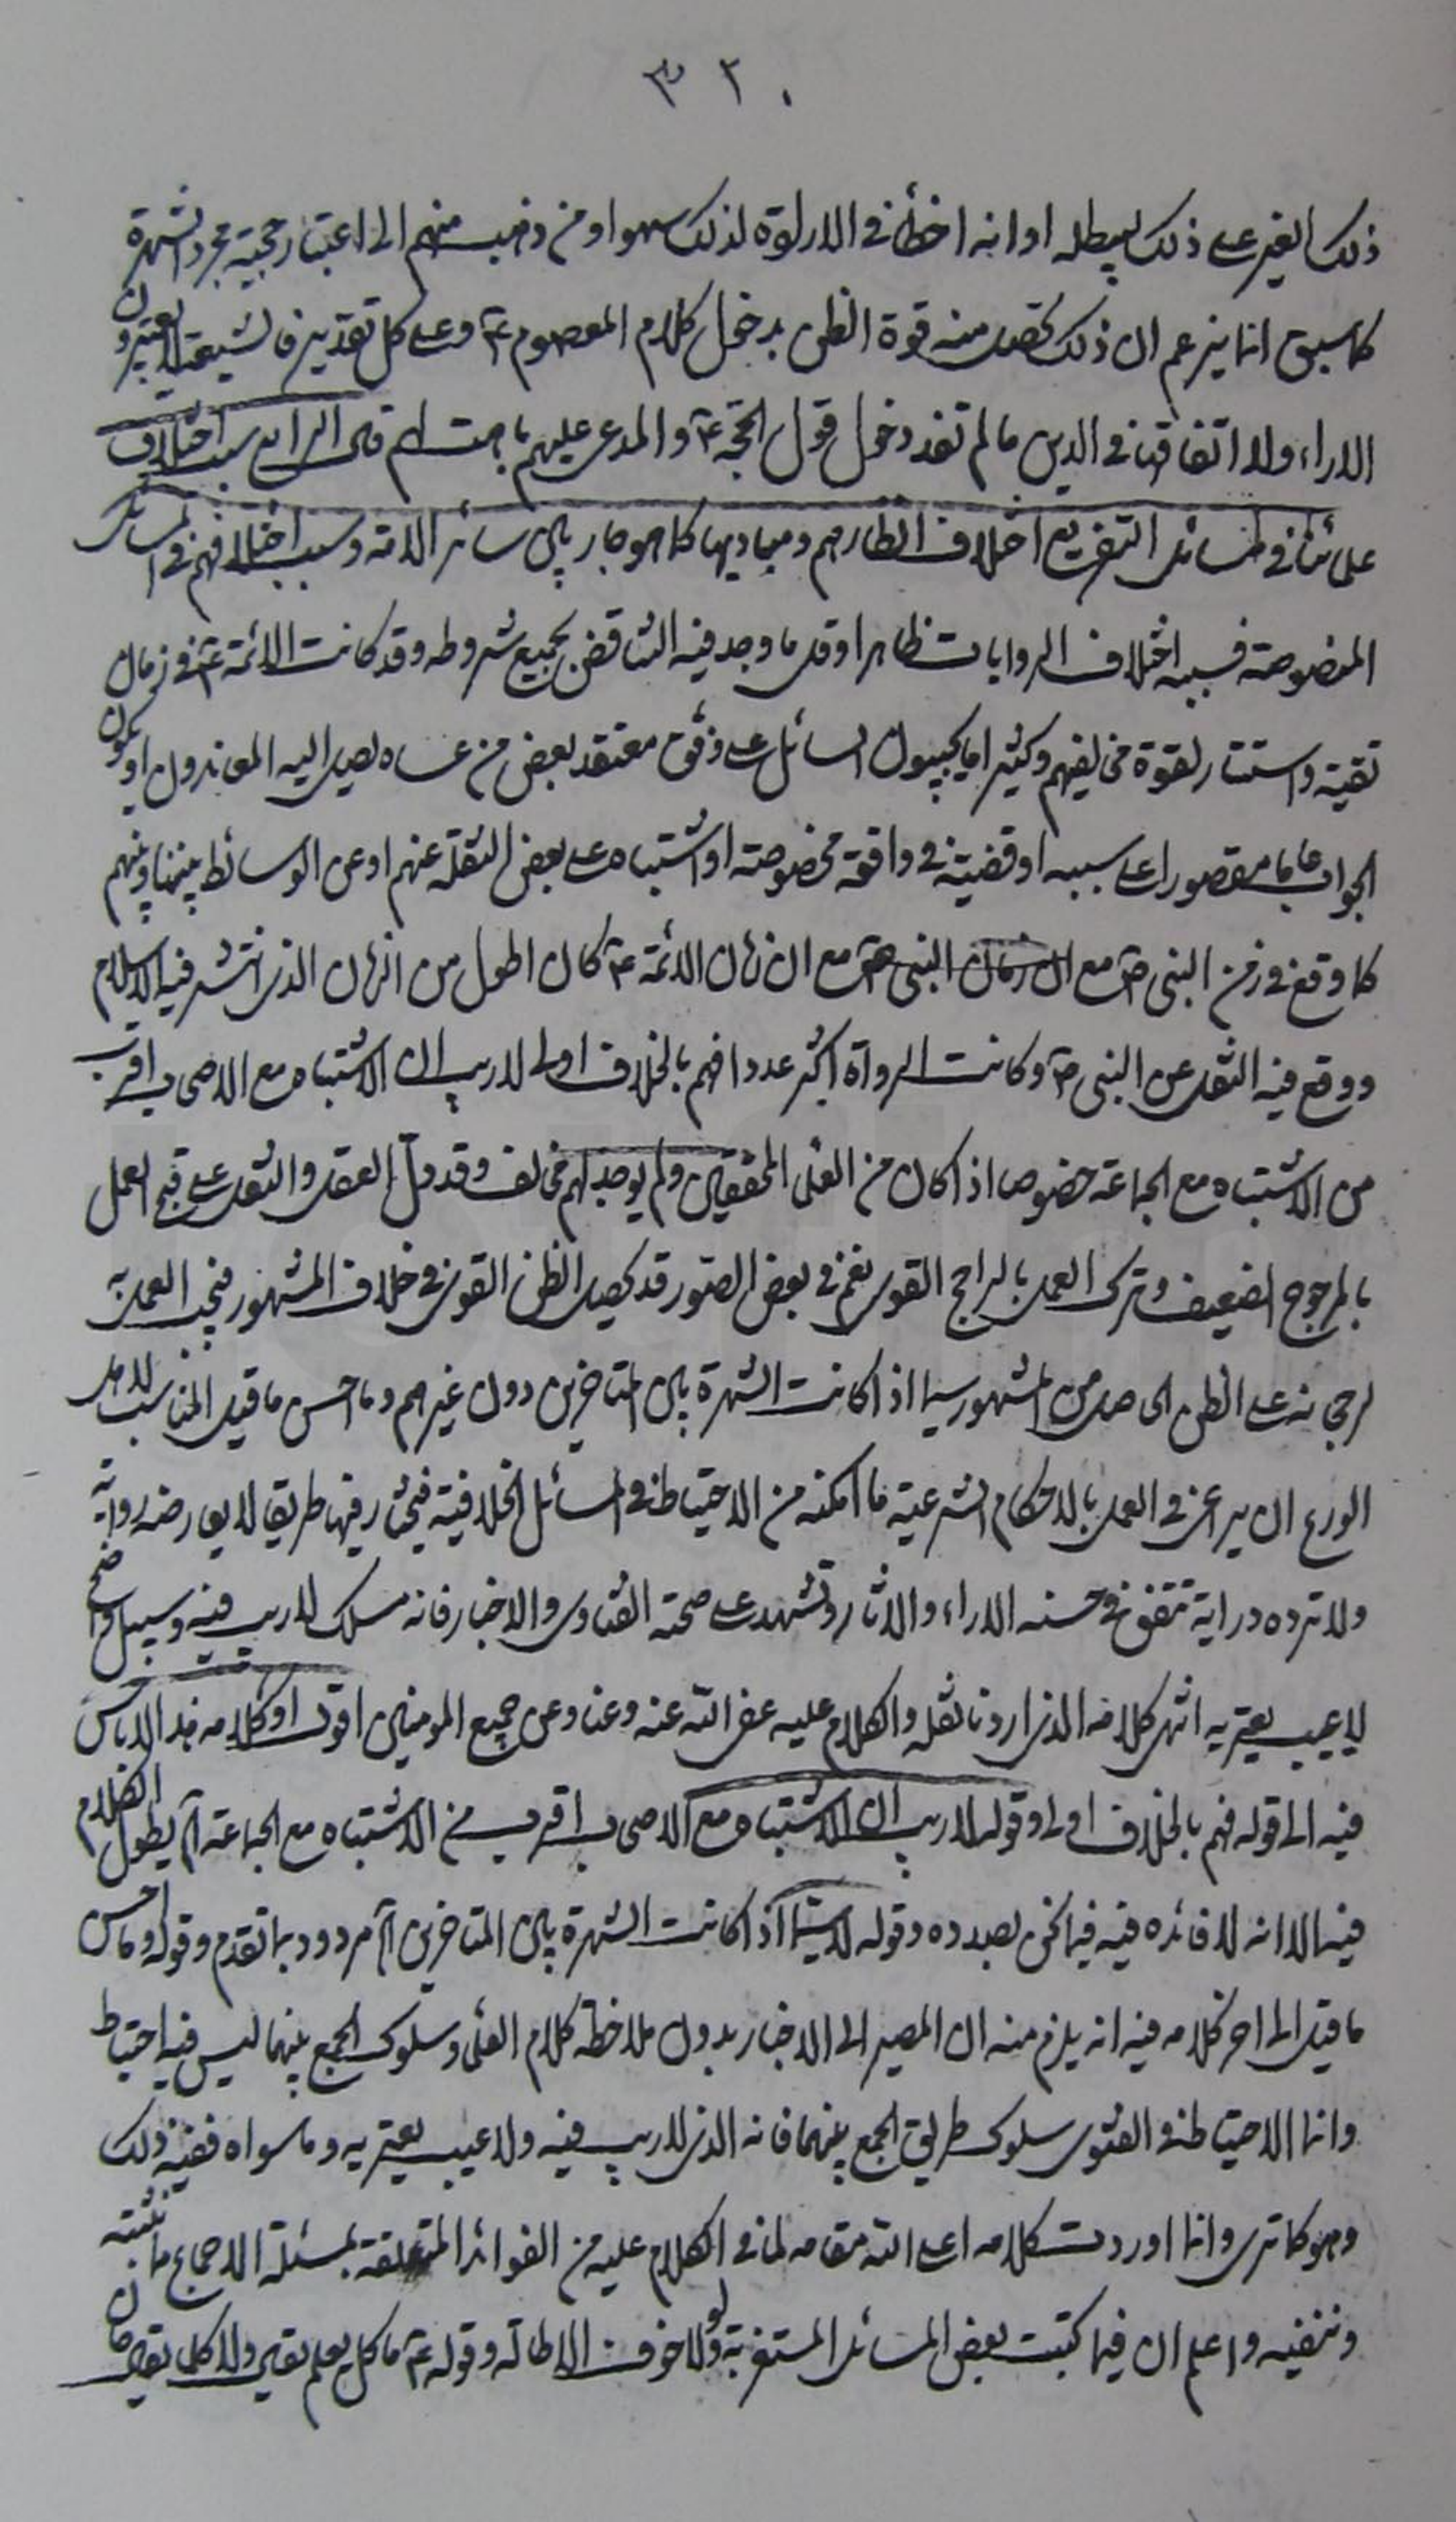 ٣٢٠
ذلك الغير على ذلك ليبطله او انه اخطأ في الاراءة لذلك سهوا ومن ذهب منهم الى اعتبار حجية مجرد الشهرة
كما سبق انما يزعم ان ذلك تحصل منه قوة الظن بدخول كلام المعصوم ع وعلى كل تقدير فالشيعة لا يعتبرون
الاراء ولا اتفاقها في الدين ما لم تفد دخول قول الحجة ع والمدعى عليهم باهت لهم قال الرابع سبب اختلاف
علمائنا في المسائل التفريع اختلاف انظارهم ومباديها كما هو جار بين سائر الامة وسبب اختلافهم في المسائل
المنصوصة فسببه اختلاف الروايات ظاهرا وقل ما وجد فيه التناقض بجميع شروطه وقد كانت الائمة ع في زمان
تقية واستتار لقوة مخالفيهم وكثيرا ما يجيبون السائل على وفق معتقد بعض من عساه يصل اليه المعاندون او يكون
الجواب عاما مقصورا على سببه او قضية في واقعة مخصوصة او اشتباه على بعض النقلة عنهم او عن الوسائط بيننا وبينهم
كما وقع في زمن النبي ص مع ان زمان النبي ص مع ان زمان الائمة ع كان اطول من الزمان الذي انتشر فيه الاسلام
ووقع فيه النقل عن النبي ص وكانت الرواة اكثر عددا فهم بالخلاف اولى لا ريب ان الاشتباه مع الاصحاب اقرب
من الاشتباه مع الجماعة خصوصا اذا كان من العلماء المحققين ولم يوجد لهم مخالف وقد دل العقل والنقل على قبح العمل
بالمرجوح الضعيف وترك العمل بالراجح القوي نعم في بعض الصور قد يحصل الظن القوي في خلاف المشهور فيجب العمل به
لرجحانه على الظن الحاصل من المشهور سيما اذا كانت الشهرة بين المتاخرين دون غيرهم وما احسن ما قيل المناسب لاهل
الورع ان يراعي في العمل بالاحكام الشرعية ما امكنه من الاحتياط في المسائل الخلافية فيختار فيها طريقا لا يعارضه رواية
ولا ترده دراية تتفق في حسنه الاراء والاثار وتشهد على صحته الفتاوى والاخبار فانه مسلك لا ريب فيه وسبيل واضح
لا عيب يعتريه انتهى كلامه الذي اردنا نقله والكلام عليه عفى الله عنه وعنا وعن جميع المومنين اقول اول كلامه هذا لا باس
فيه الى قوله فهم بالخلاف اولى وقوله لا ريب ان الاشتباه مع الاصحاب اقرب من الاشتباه مع الجماعة الخ يطول الكلام
فيه الا انه لا فائده فيه فيما نحن بصدده وقوله لا سيما اذا كانت الشهرة بين المتاخرين الخ مردود بما تقدم وقوله وما احسن
ما قيل الى اخر كلامه فيه انه يلزم منه ان المصير الى الاخبار بدون ملاحظة كلام العلماء وسلوك الجمع بينهما ليس فيه احتياط
وانما الاحتياط في الفتوى سلوك طريق الجمع بينهما فانه الذي لا ريب فيه ولا عيب يعتريه وما سواه ففيه ذلك
وهو كما ترى وانما اوردت كلامه اعلى الله مقامه لما في الكلام عليه من الفوائد المتعلقة بمسئلة الاجماع ما نثبته
وننفيه واعلم ان فيما كتبت بعض المسائل المستغربة ولولا خوف الاطالة وقوله ع ما كل يعلم يقال ولا كل يقال حان